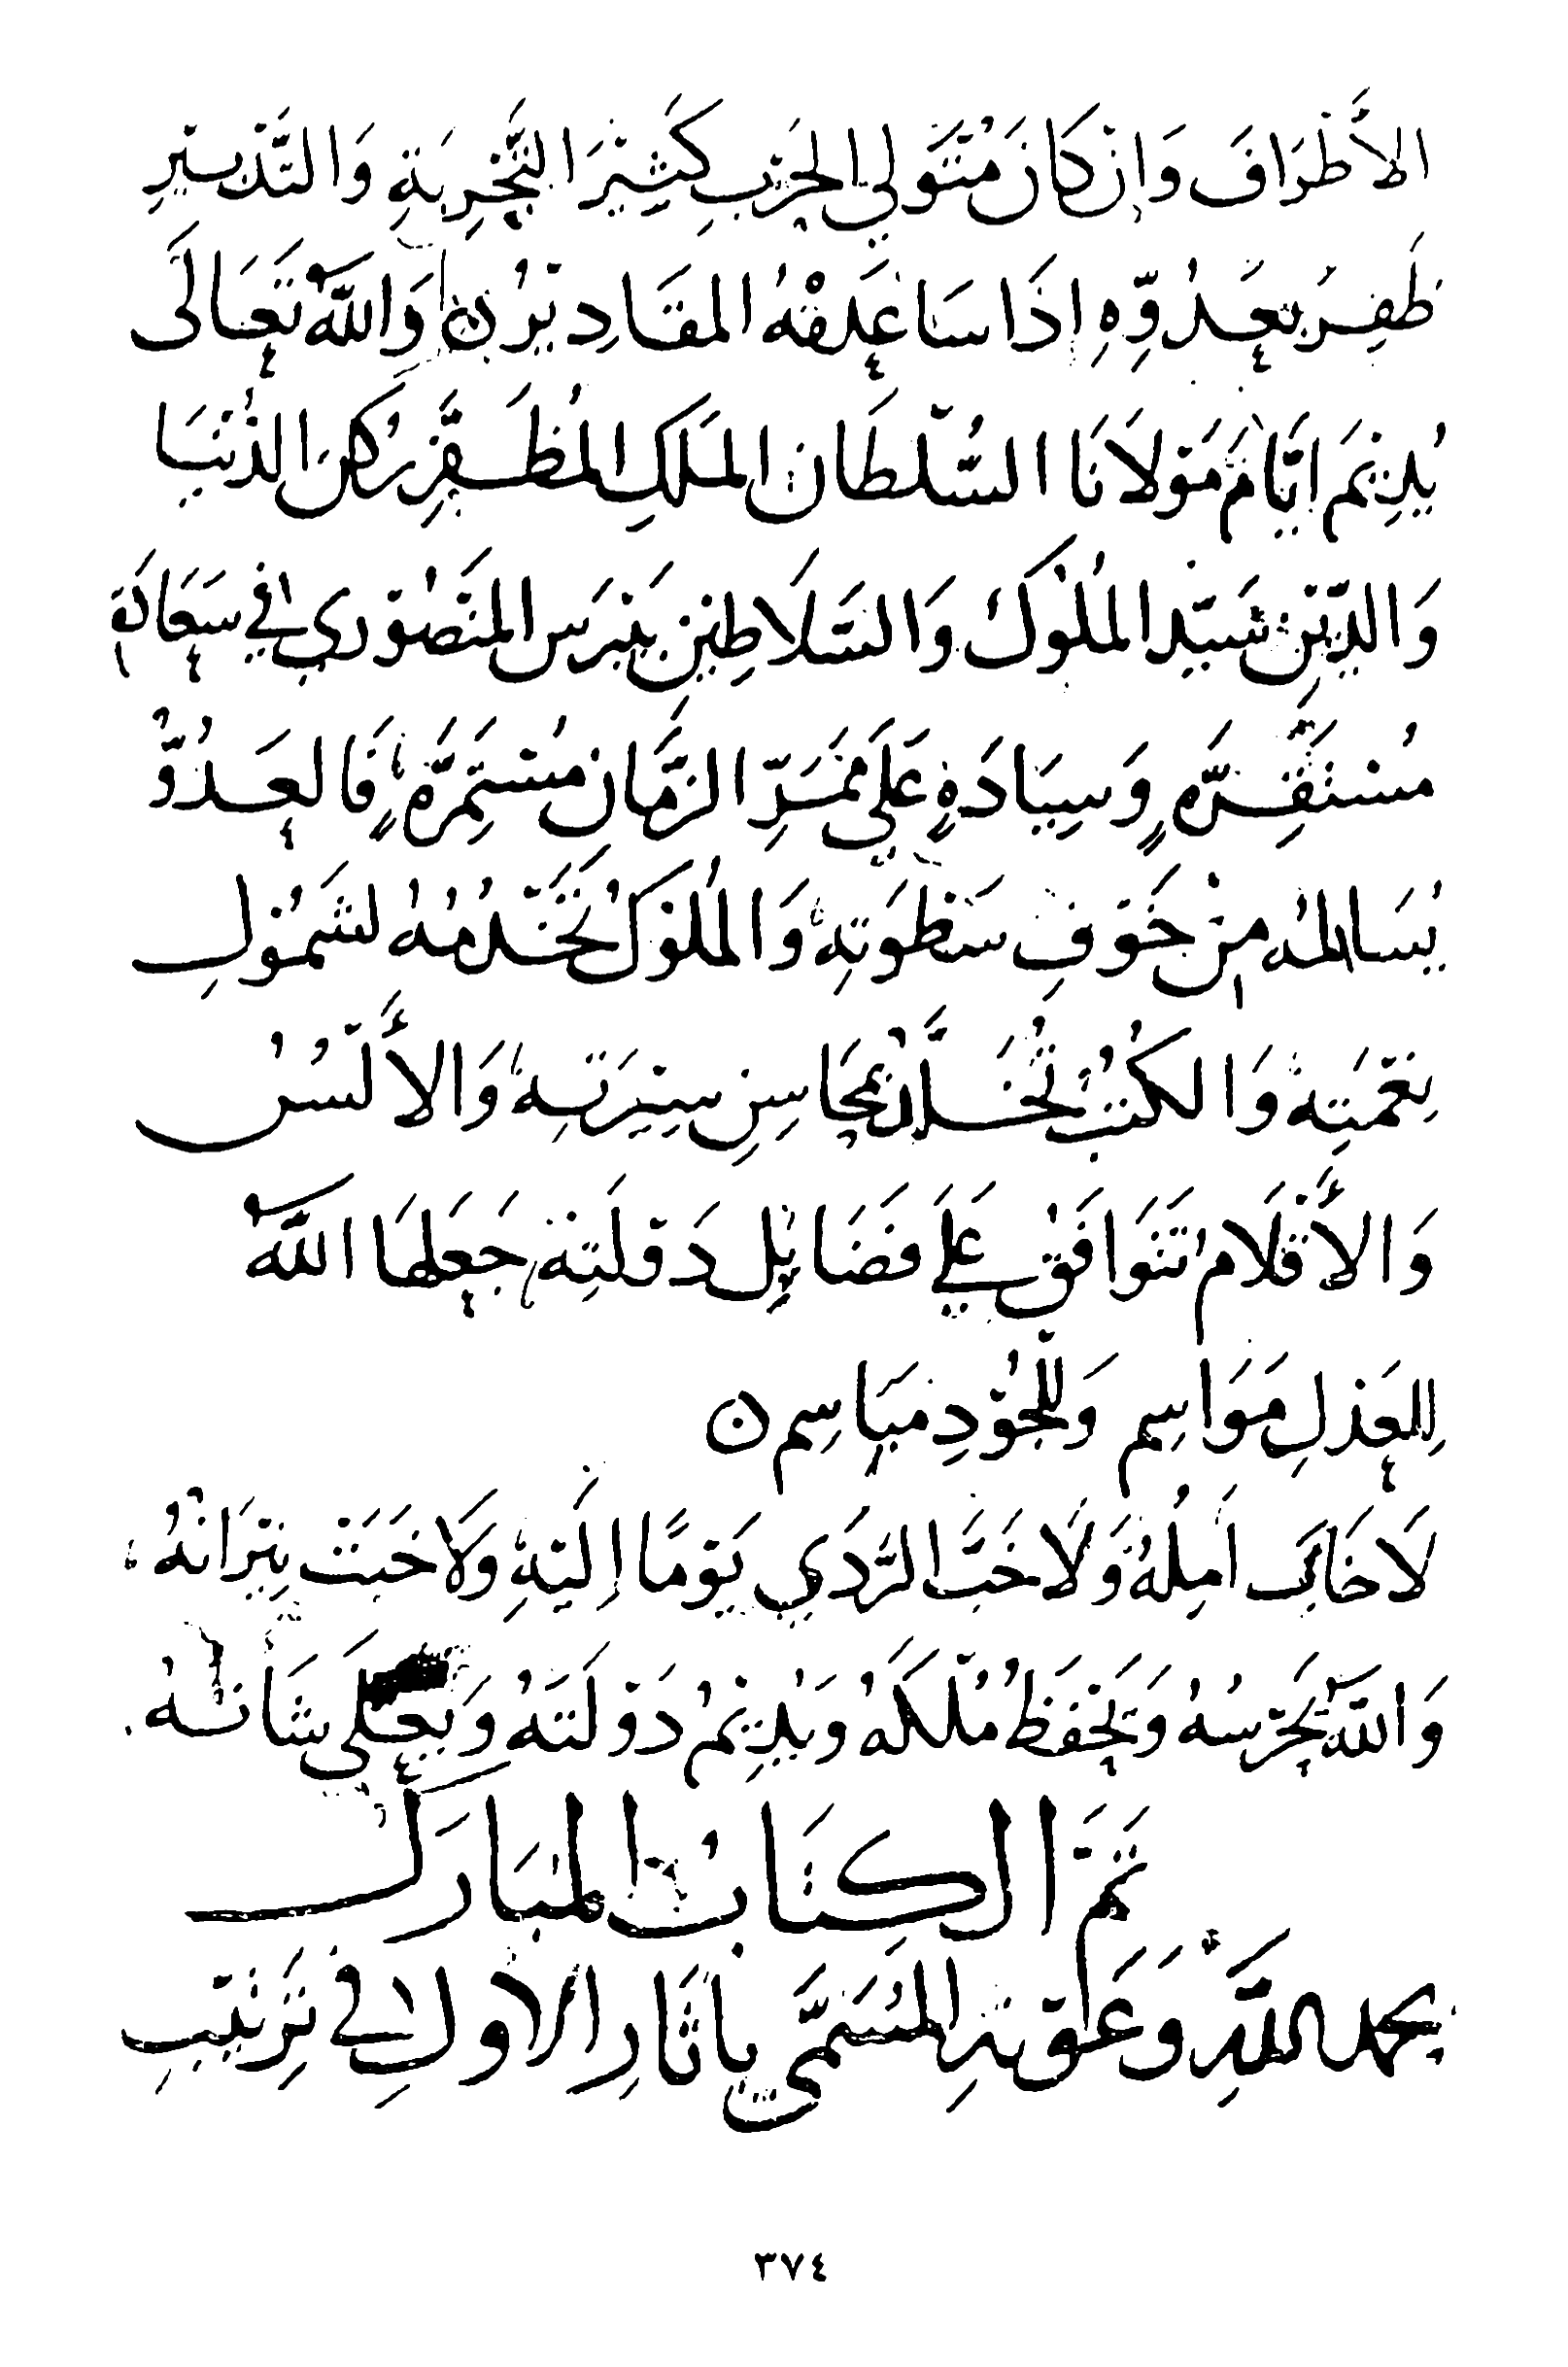 الأَطْرَافَ وَإِنْ كَانَ مُتَوَلِي الحَرْبِ كَثِيْرَ التَّجْرِبَةِ وَالتَّدْبِيْرِ
ظَفِرَ بِعَدُوِّهِ اِذَا سَاعَدَتْهُ المقَادِيْرُ ن وَاللَّهُ تَعَالَى
يُدِيْمَ ايَّامَ مَوْلَانَا السُّلْطَان المَلَكِ المُظَفَّرِ رُكْنَ الدُنْيَا
وَالدِّيْنِ سَيِّد المُلُوْكَ وَالسَّلَاطِيْنِ بَيْبَرَس المَنصُوْرِي فِي سَعَادَةٍ
مُسْتَقِرَّةٍ وَسِيَادَةٍ عَلَى مَمَرِّ الزَّمَان مُسْتَمِرَّةٍ فَالعَدُوُّ
يُسَالمُه مِنْ خَوْفِ سَطْوَتِهِ وَالمُلُوْكُ تَخْدُمُهُ لشُمُوْلِ
نِعْمَتِهِ وَالكُتُبُ تُخَلَّدُ بمَحَاسِنِ سِيْرَتِهِ وَالأَلْسُنُ
وَالأَقْلَامُ تَتَوَافَقُ عَلَى فَضَايِلِ دَوْلَتِهِ جَعَلهَا اللَّه
لِلعَدْلِ مَوَاسِم وَللجُوْدِ مَبَاسِم ن
لَا خَابَ اَمِلُهُ وَلَا خَبَّ الرَّدَي يَوْمًا اِلَيْهِ وَلَا خَبَتْ نِيْرَانُهُ
وَاللَّهُ يَحْرُسُهُ وَيَحْفَظُ مُلْكَهُ وَيُدِيْمُ دَوْلَتَهُ وَيُعْلِي شَانَهُ
تَمَّ الكِتَابُ المُبَارَك
بحمد اللَّهِ وَعَوْنِهِ المُسَمَّى بِاثَارِ الاوَلِ فِي تَرْتِيْبِ
٣٧٤